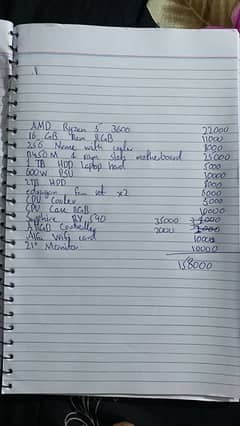 AMD Ryzen 5 3600 22000
16 GB Ram RGB 11000
256 Nvme with cooler 8000
B450M 4 ram slots motherboard 25000
1 TB HDD Laptop hard 5000
600W PSU 10000
2TB HDD 8000
Fan set x2 6000
CPU Cooler 5000
CPU Case RGB 10000
Sapphire RX 590 35000
ARGB Controller 2000
Wifi card 1000
21" Monitor 10000
158000